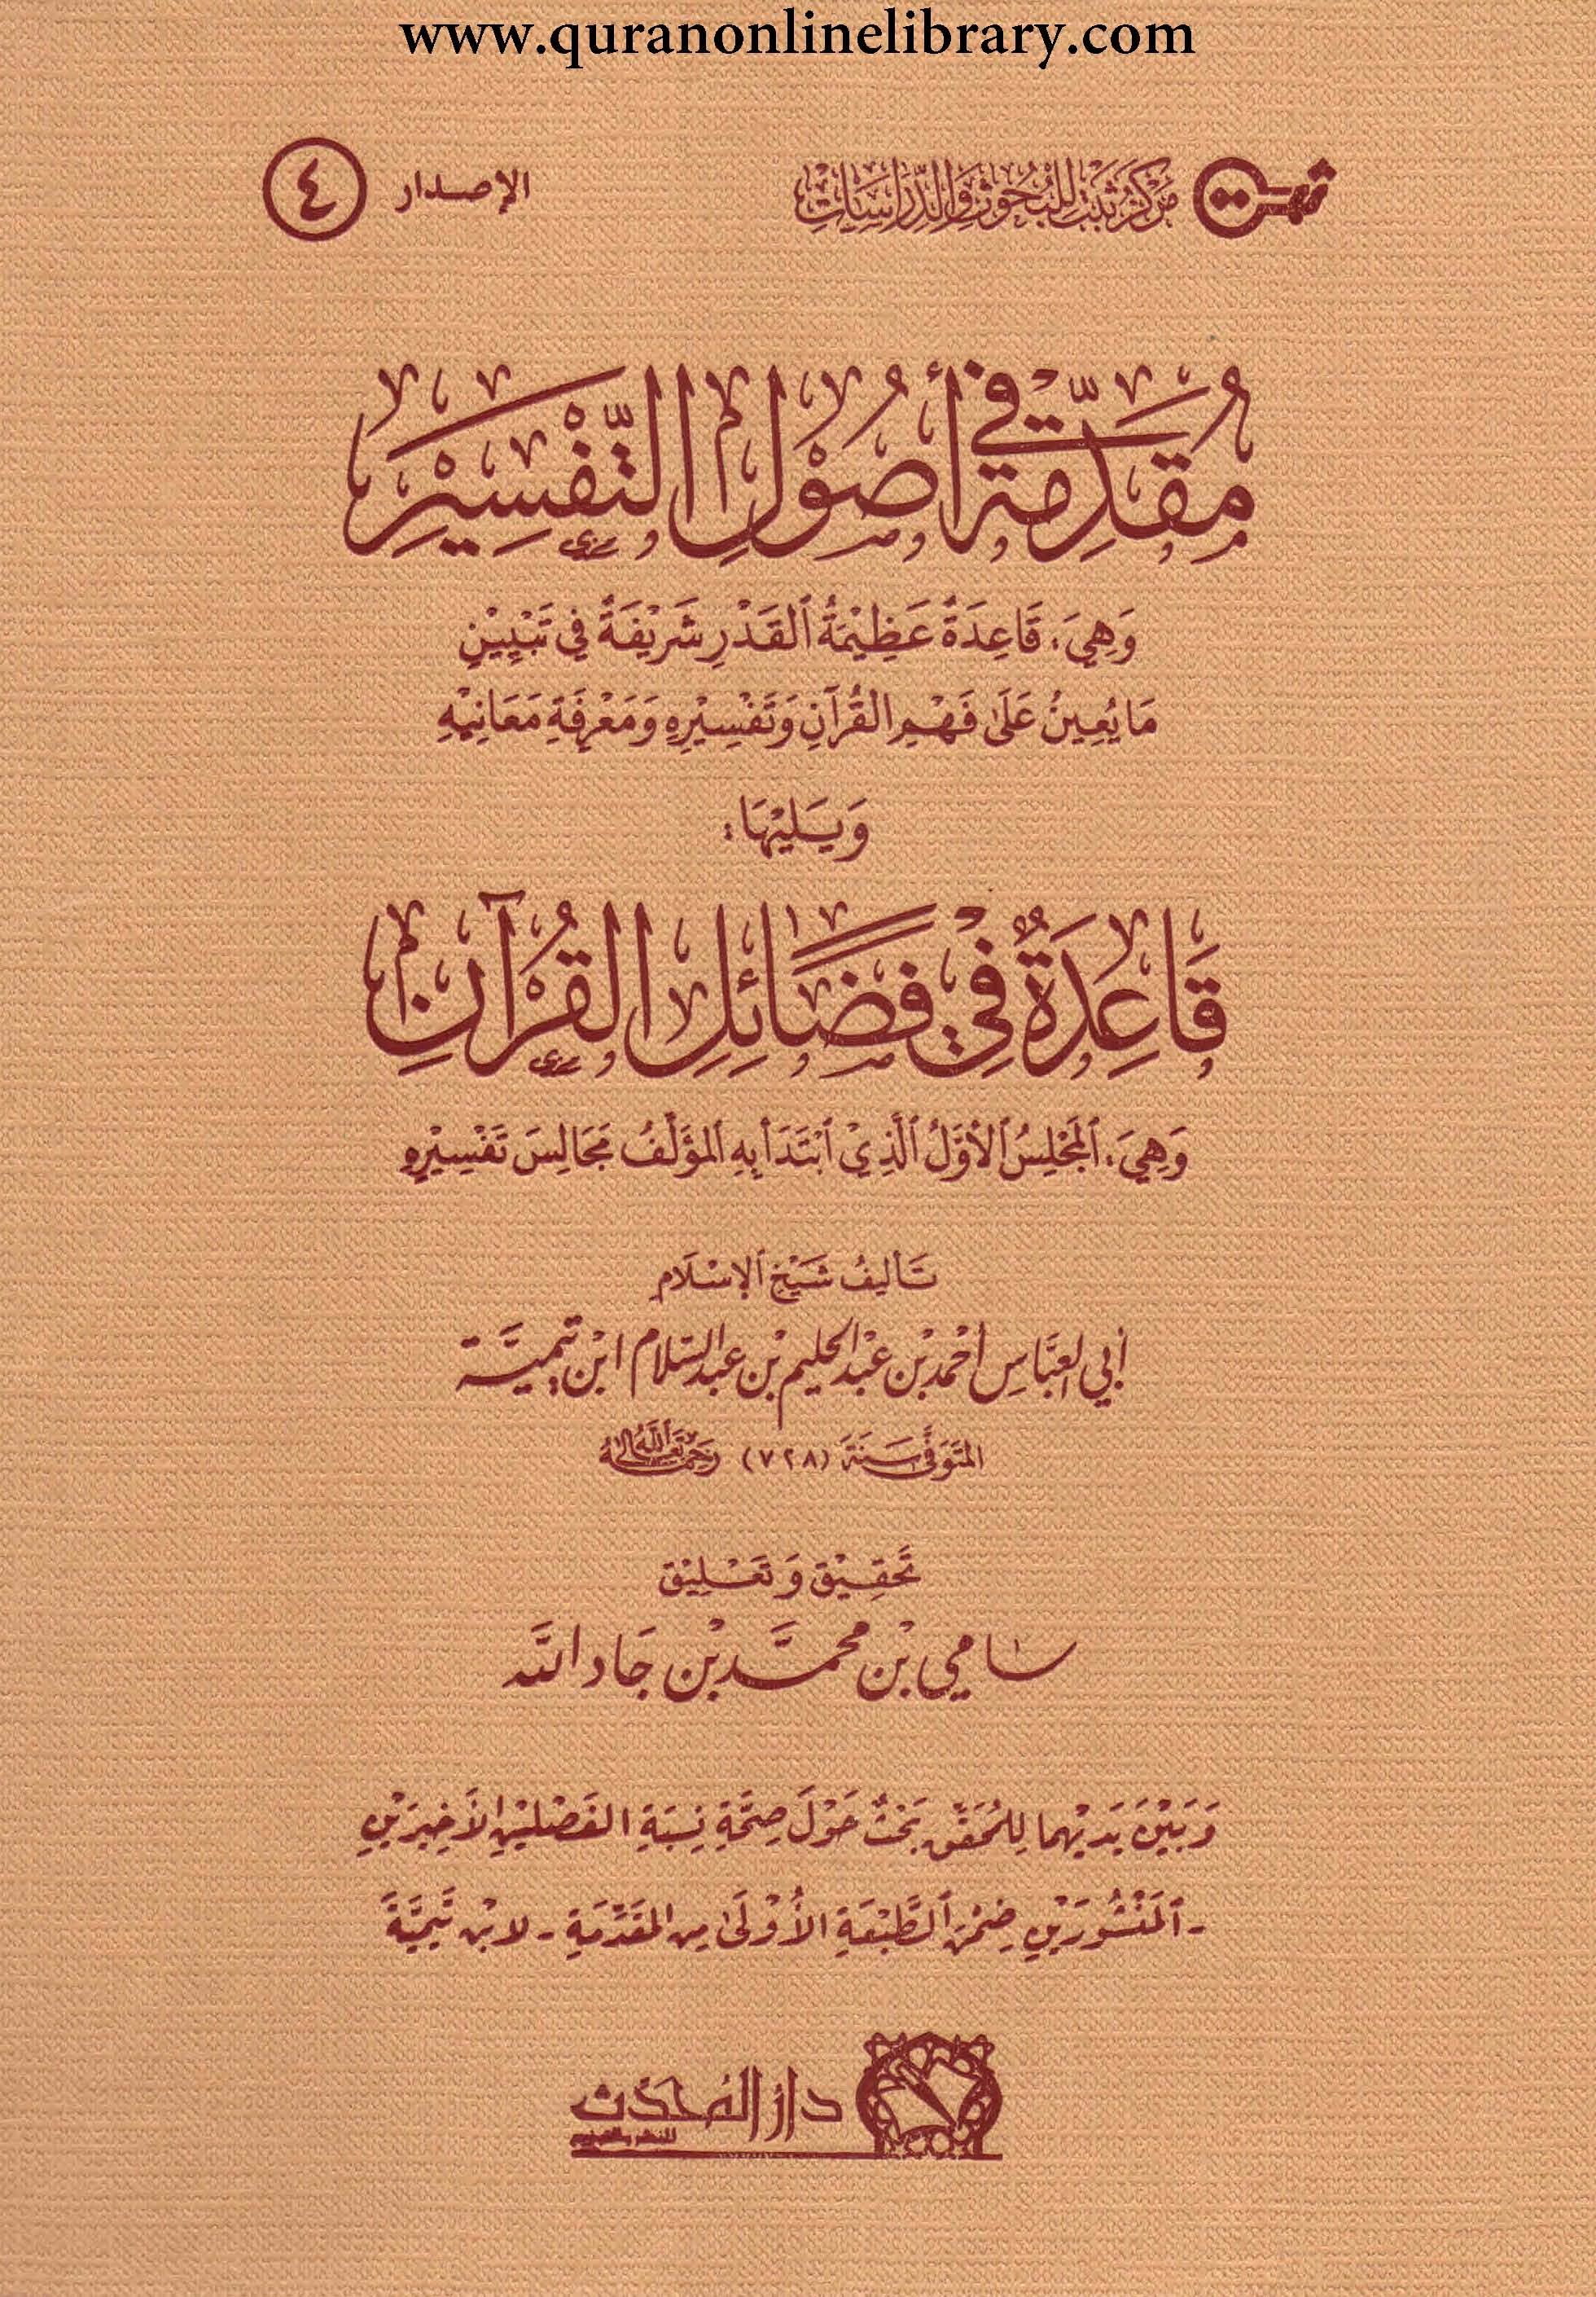 www.quranonlinelibrary.com
مَرْكَزُ ثَبَتْ لِلْبُحُوثِ وَالدِّرَاسَاتِ
الإصدار ٤
مُقَدِّمَةٌ فِي أُصُوْلِ التَّفْسِيْرِ
وَهِيَ: قَاعِدَةٌ عَظِيْمَةُ ٱلقَدْرِ شَرِيْفَةٌ فِي تَبْيِيْنِ
مَا يُعِينُ عَلَىٰ فَهْمِ القُرْآنِ وَتَفْسِيْرِهِ وَمَعْرِفَةِ مَعَانِيْهِ
وَيَلِيْهَا:
قَاعِدَةٌ فِيْ فَضَائِلِ القُرْآنِ
وَهِيَ: ٱلمَجْلِسُ ٱلأَوَّلُ ٱلَّذِيْ ٱبْتَدَأَ بِهِ ٱلمُؤَلِّفُ مَجَالِسَ تَفْسِيْرِهِ
تَأليفُ شَيْخِ ٱلإسْلَامِ
أبي العبَّاسِ أحْمَد بْن عَبْد الحليم بْن عَبد السَّلام ابْن تَيميَّة
المُتَوَفَّى سَنَةَ (٧٢٨) رَحِمَهُ اللَّهُ تَعَالَىٰ
تَحقِيْق وَ تَعْلِيْق
سَامي بْن محمَّد بْن جَاد الله
وَبَيْنَ يَدَيْهما لِلمُحَقِّق بَحْثٌ حَوْلَ صِحَّةِ نِسْبَةِ الفَصْلَيْنِ الأَخِيرَيْنِ
- ٱلمَنْشُورَيْنِ ضِمْنَ ٱلطَّبْعَةِ الأُوْلَىٰ مِن المُقَدِّمَةِ - لابْن تَيْمِيَّةَ
دار المُحَدِّث
للنشر والتوزيع